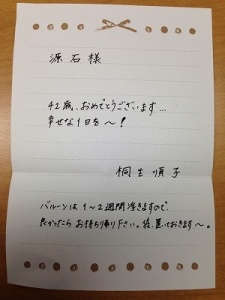 源石様
42歳、おめでとうございます…
幸せな1日を〜!
桐生順子
バルーンは1〜2週間浮きますので、
良かったらお持ち帰り下さい。後、置いておきます〜。